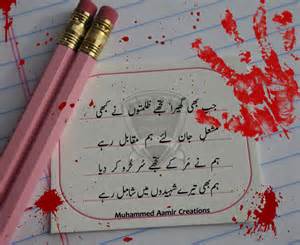 جب بھی گھیرا تجھے ظلمتوں نے کبھی
مشعل جاں لئے ہم مقابل رہے
ہم نے مر کے تجھے سر خرو کر دیا
ہم بھی تیرے شہیدوں میں شامل رہے
Muhammed Aamir Creations